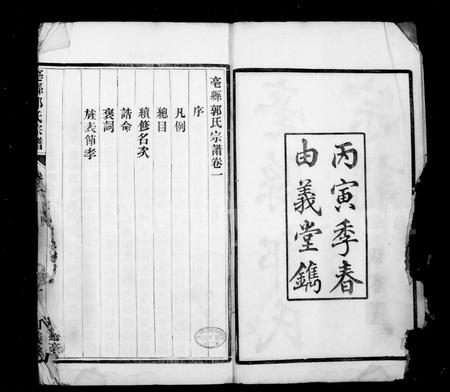 丙寅季春
由義堂鐫
亳縣郭氏宗譜卷一
序
凡例
總目
續修名次
誥命
褒詞
旌表節孝
亳縣郭氏宗譜